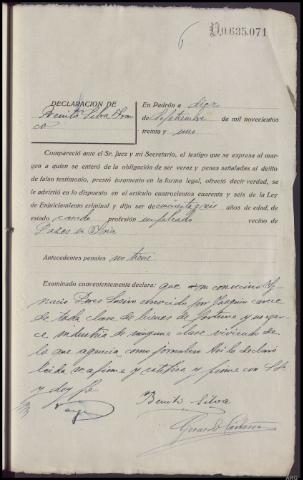 6
D.0.625.071
DECLARACION DE
Benito Silva Bran
co
En Padrón a diez
de Septiembre de mil novecientos
treinta y uno
Compareció ante el Sr. Juez y mi Secretario, el testigo que se expresa al mar-
gen a quien se enteró de la obligación de ser veraz y penas señaladas al delito
de falso testimonio, prestó juramento en la forma legal, ofreció decir verdad, se
le advirtió en lo dispuesto en el artículo cuatrocientos cuarenta y seis de la Ley
de Enjuiciamiento criminal y dijo ser de años de edad, de
estado casado profesión empleado vecino de
Antecedentes penales no tiene
Examinado convenientemente declara: que su convecino Ig-
nacio conocido por carece
de toda clase de bienes de fortuna y no ejer-
ce industria de ninguna clase viviendo de
lo que agencia como jornalero. Así lo declaró
leída se afirma y ratifica y firma con S.S.
y doy fe
Benito Silva